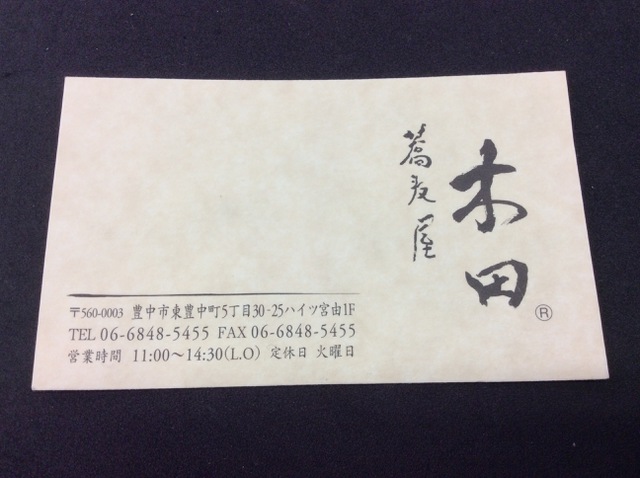 木田®
蕎麦屋
〒560-0003 豊中市東豊中町5丁目30-25ハイツ宮由1F
TEL 06-6848-5455 FAX 06-6848-5455
営業時間 11:00〜14:30(L.O) 定休日 火曜日